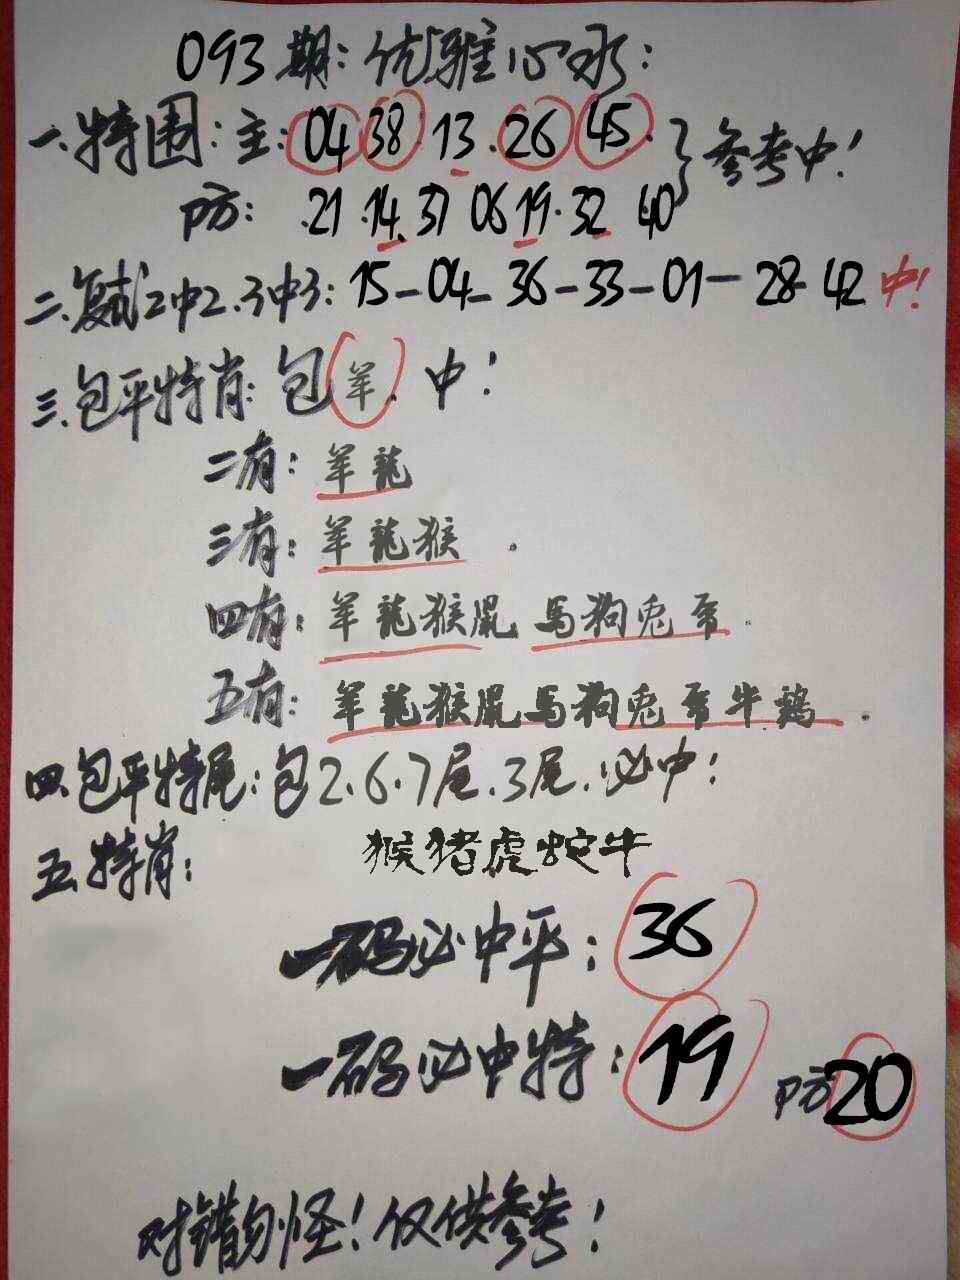 093期:优雅心水:
一.特围:主:04 38·13·26 45·}参考中!
防: ·21·14.37 06 19·32 40
二.复试2中2.3中3:15-04-36-33-01-28-42中!
三.包平特肖:包羊.中!
二有:羊龍
三有:羊龍猴.
四有:羊龍猴鼠 馬狗兔.
五有:羊龍猴鼠馬狗兔牛鷄.
四.包平特尾:包2.6.7尾.3尾.必中!
五.特肖: 猴猪虎蛇牛
一码必中平:36
一码必中特:19 防20
对错勿怪!仅供参考!